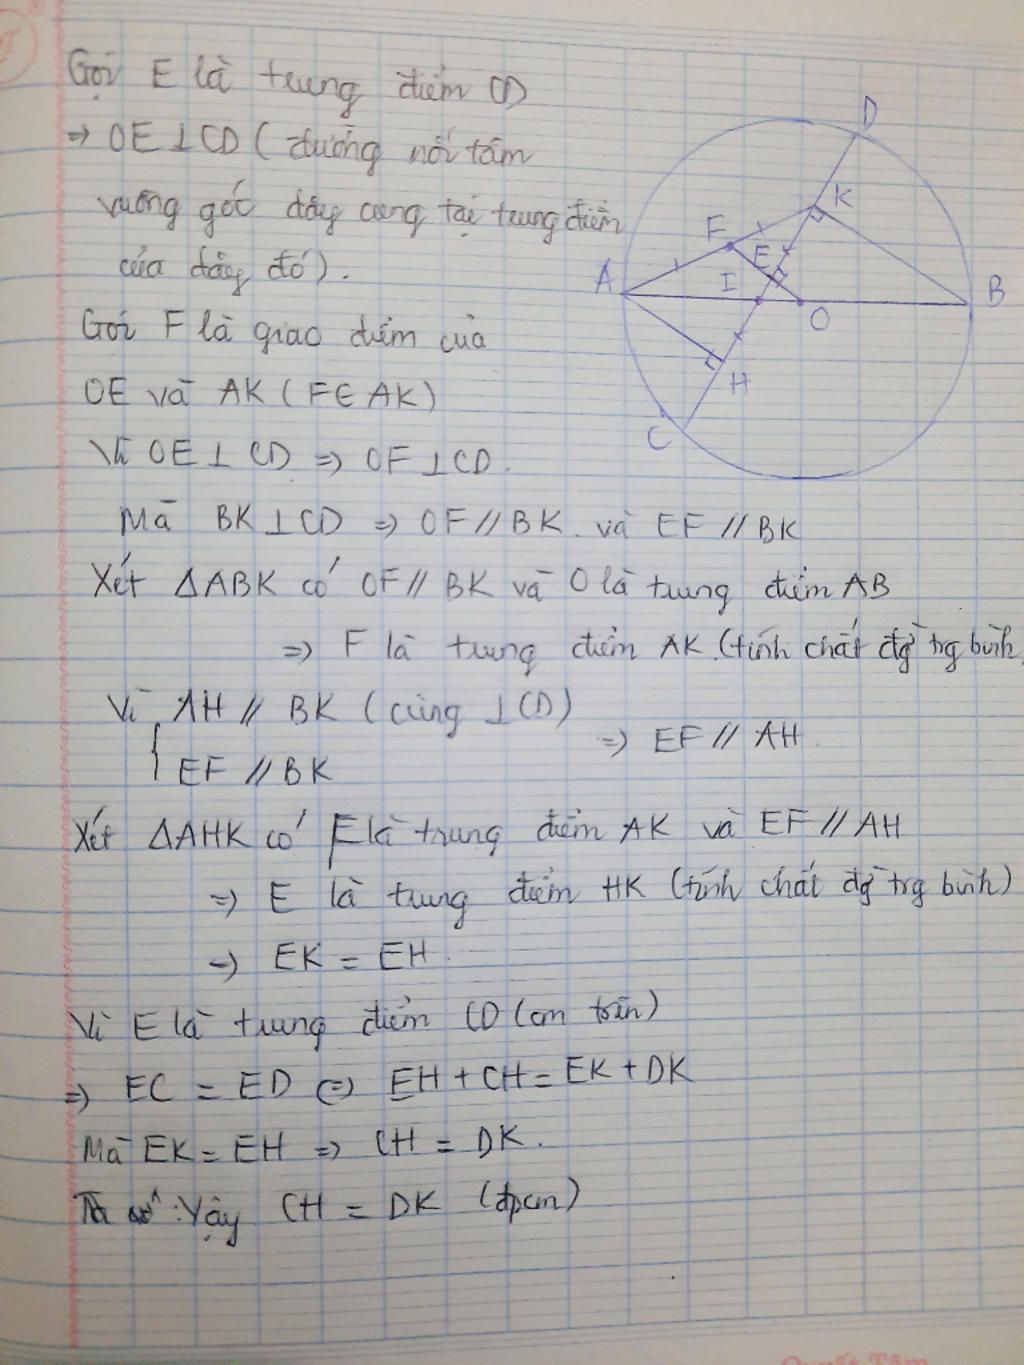 Gọi E là trung điểm CD
=> OE ⊥ CD ( đường nối tâm
vuông góc dây cung tại trung điểm
của dây đó ).
Gọi F là giao điểm của
OE và AK ( F ∈ AK )
Vì OE ⊥ CD => OF ⊥ CD.
Mà BK ⊥ CD => OF // BK. và EF // BK
Xét ΔABK có OF // BK và O là trung điểm AB
=> F là trung điểm AK. (tính chất đg trg bình
Vì AH // BK ( cùng ⊥ CD )
{ EF // BK
=> EF // AH.
Xét ΔAHK có F là trung điểm AK và EF // AH
=> E là trung điểm HK (tính chất đg trg bình)
=> EK = EH.
Vì E là trung điểm CD (cm trên)
=> EC = ED <=> EH + CH = EK + DK
Mà EK = EH => CH = DK.
Vậy CH = DK (đpcm)
D
K
F
E
A
I
O
B
H
C